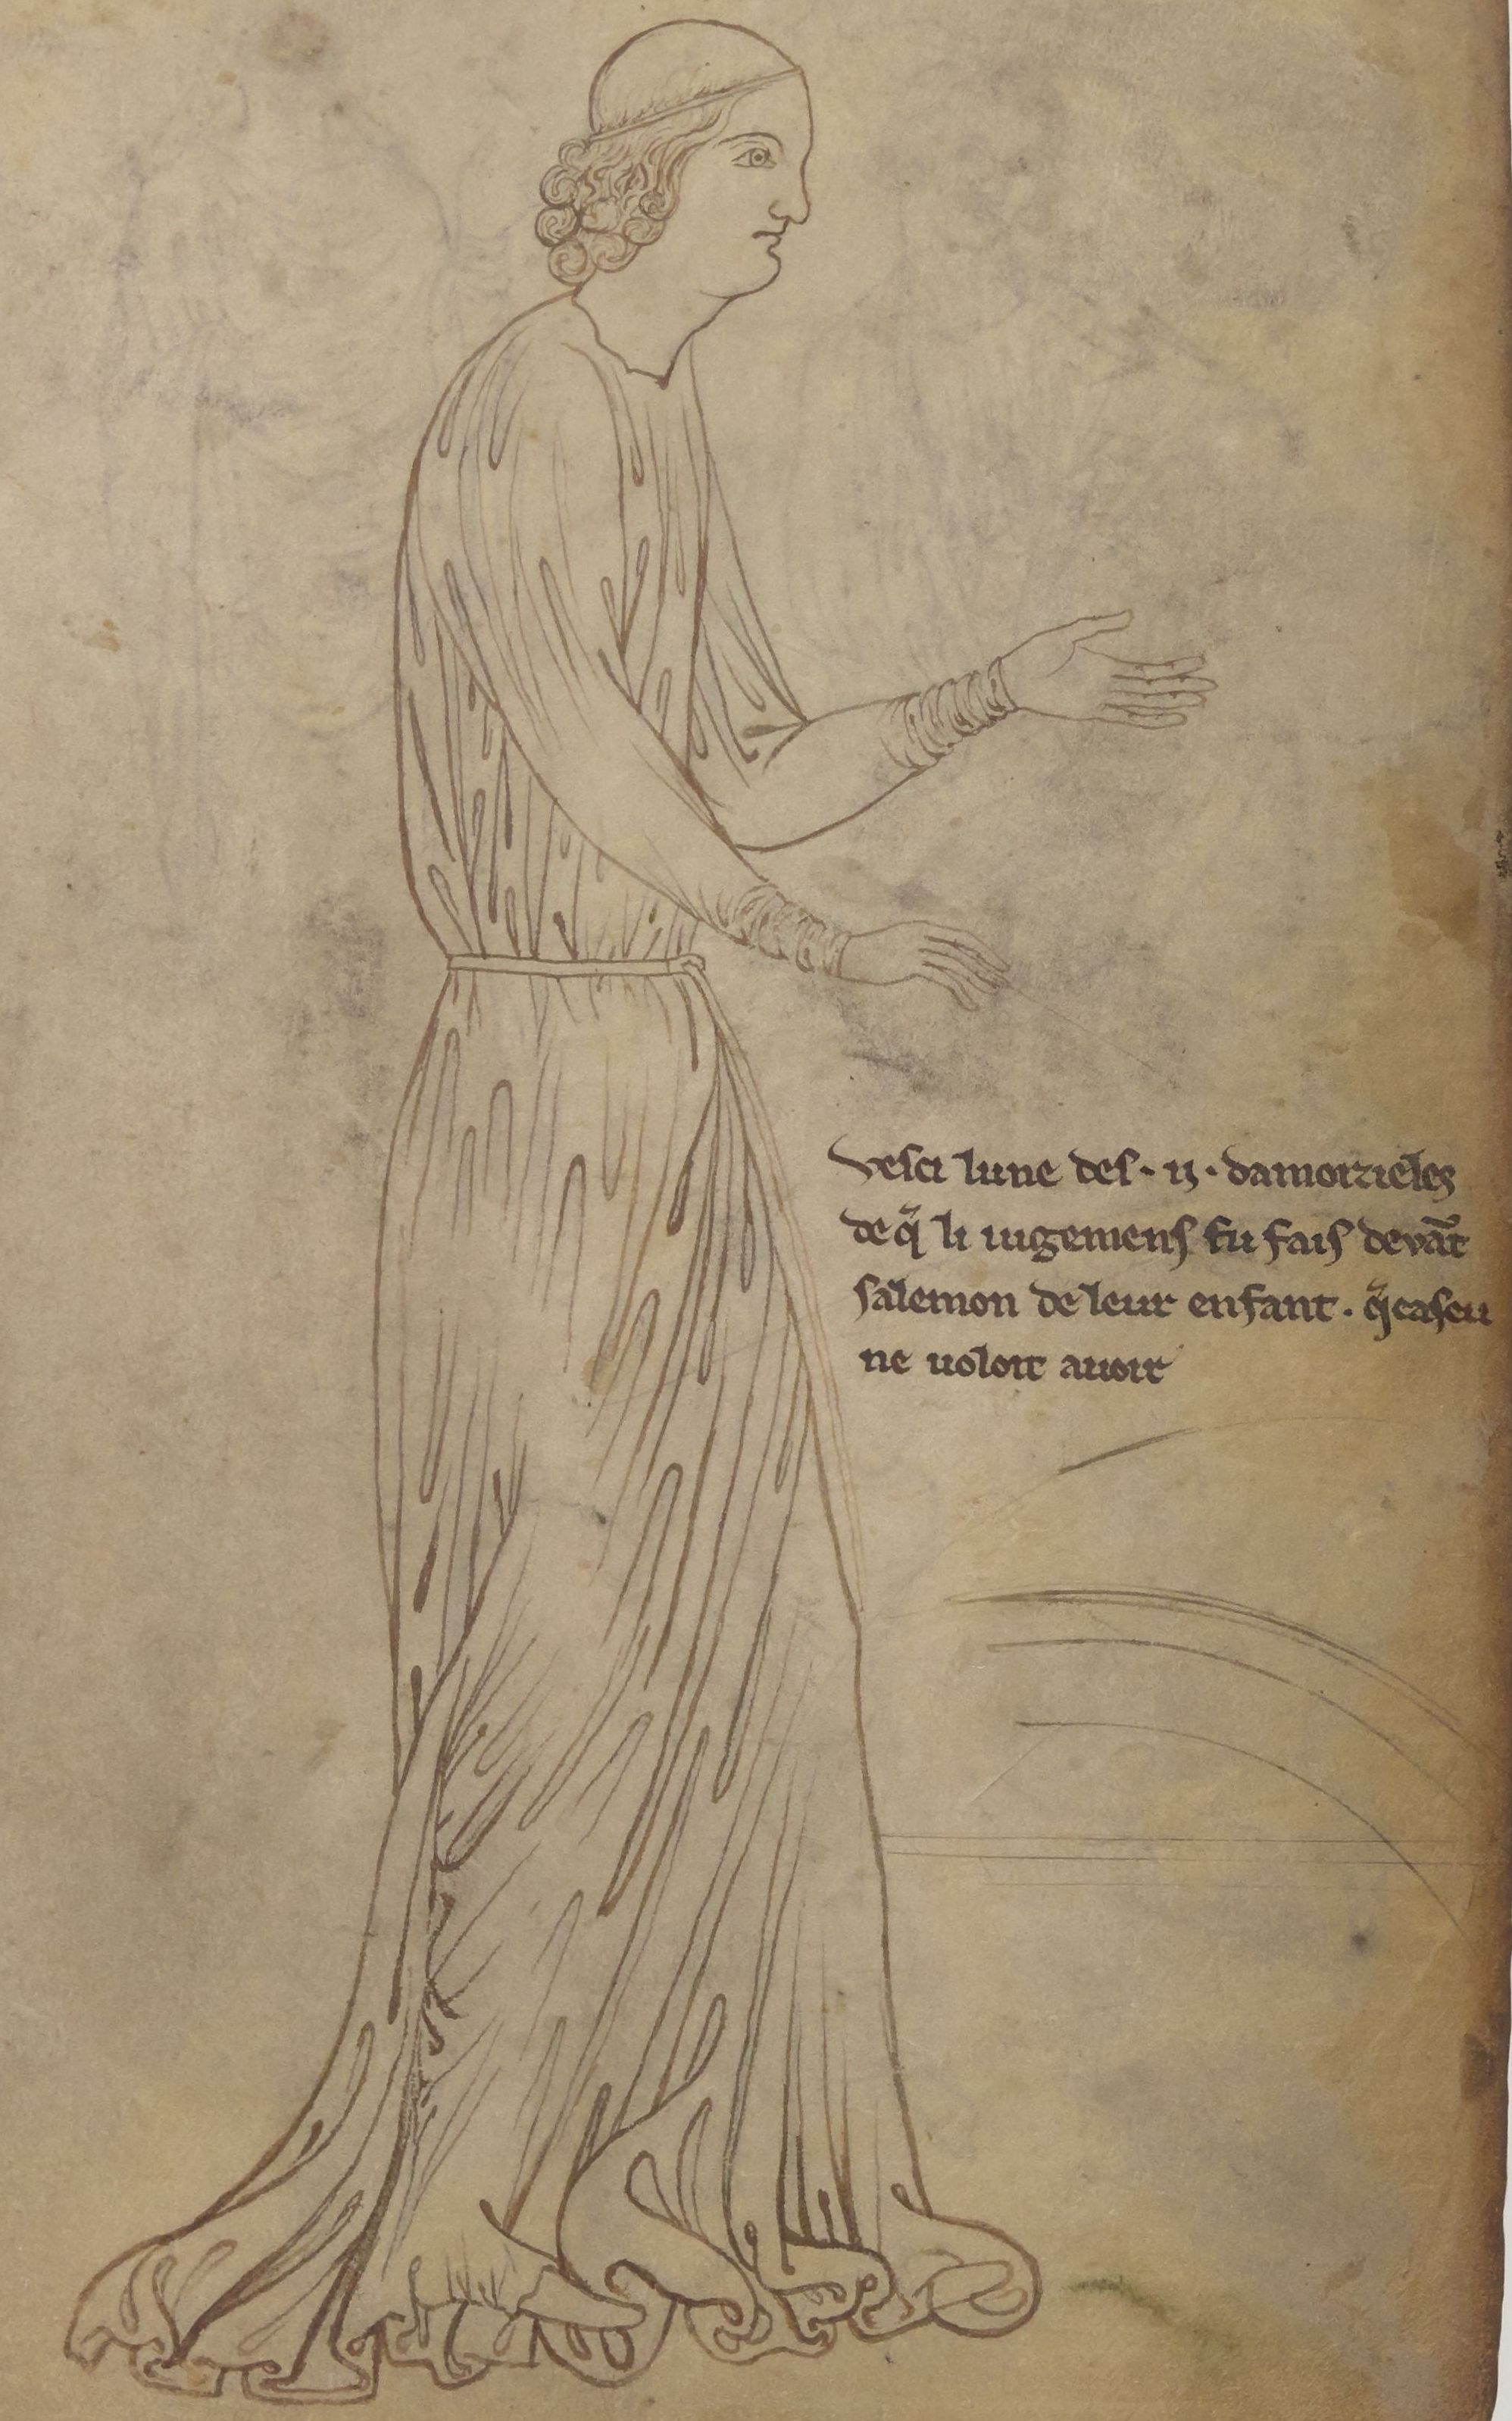 vesci lune des · ij · damoizieles
de q̃ li iugemens fu fais devãt
salemon de leur enfant . q̃ cascu
ne voloit avoir